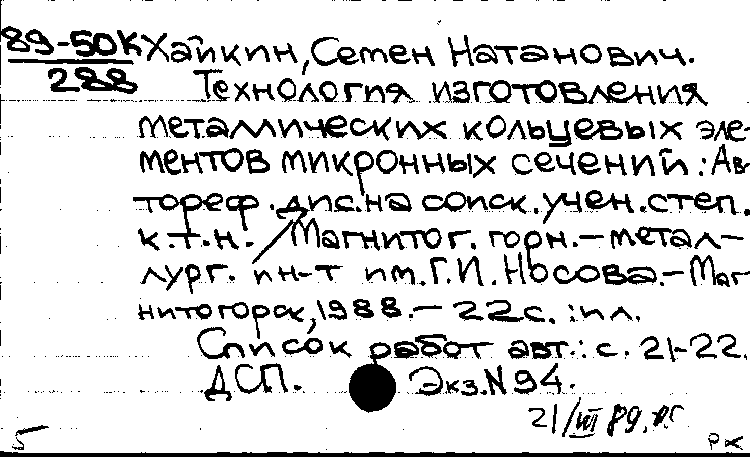 89-50К Хайкин, Семен Натанович.
288 Технология изготовления
металлических кольцевых эле-
ментов микронных сечений: Ав-
тореф. дис. на соиск. учен. степ.
к.т.н. / Магнитог. горн.-метал-
лург. ин-т им. Г.И. Носова.-Маг-
нитогорск, 1988.- 22 с. : ил.
Список работ авт.: с. 21-22.
ДСП. Экз. N 94.
21/III 89.
5 РЖ